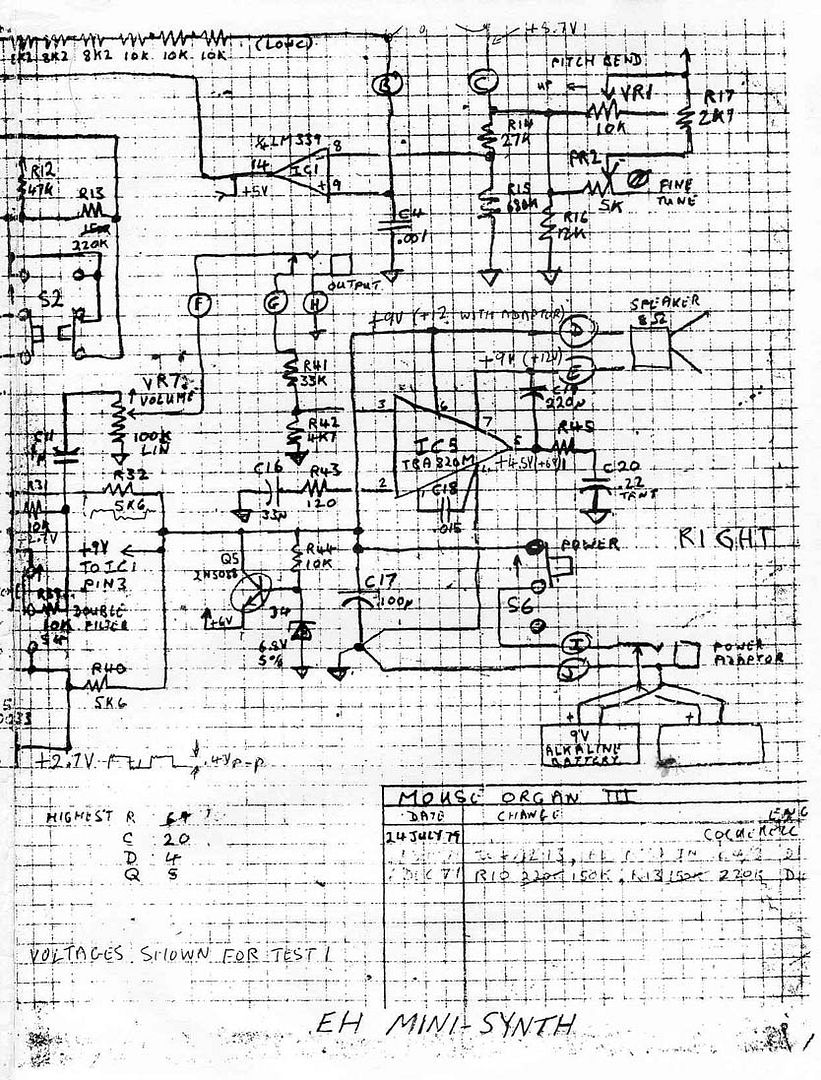 8K2 8K2 10K 10K 10K
(LONG)
+5.7V
B
C
PITCH BEND
UP
VR1
10K
R17
2K7
R14
27K
¼LM339
8
14
IC1
+5V
9
PR2
5K
FINE
TUNE
R12
47K
R13
220K
R15
680K
R16
12K
C4
.001
S2
OUTPUT
F
G
H
+9V (+12 WITH ADAPTOR)
D
SPEAKER
8Ω
+9V (+12V)
E
220µ
R41
33K
VR7
VOLUME
100K
LIN
R42
4K7
3
6
7
IC5
TBA820M
5
+4.5V(+6V)
R45
1
C20
.22
TANT
C16
33µ
R43
120
2
C18
.015
R32
5K6
R31
10K
2.7V
+9V
TO IC1
PIN3
Q5
2N5088
+6V
R44
10K
D4
6.8V
5%
C17
100µ
POWER
S6
RIGHT
DOUBLE
FILTER
10K
R40
5K6
I
J
POWER
ADAPTOR
+ +
9V
ALKALINE
BATTERY
+2.7V
.4Vp-p
HIGHEST R
C 20
D 4
Q 5
MOUSE ORGAN III
DATE CHANGE ENG
24 JULY 79
R10 220K 150K, R13 150K 220K
VOLTAGES SHOWN FOR TEST 1
EH MINI-SYNTH